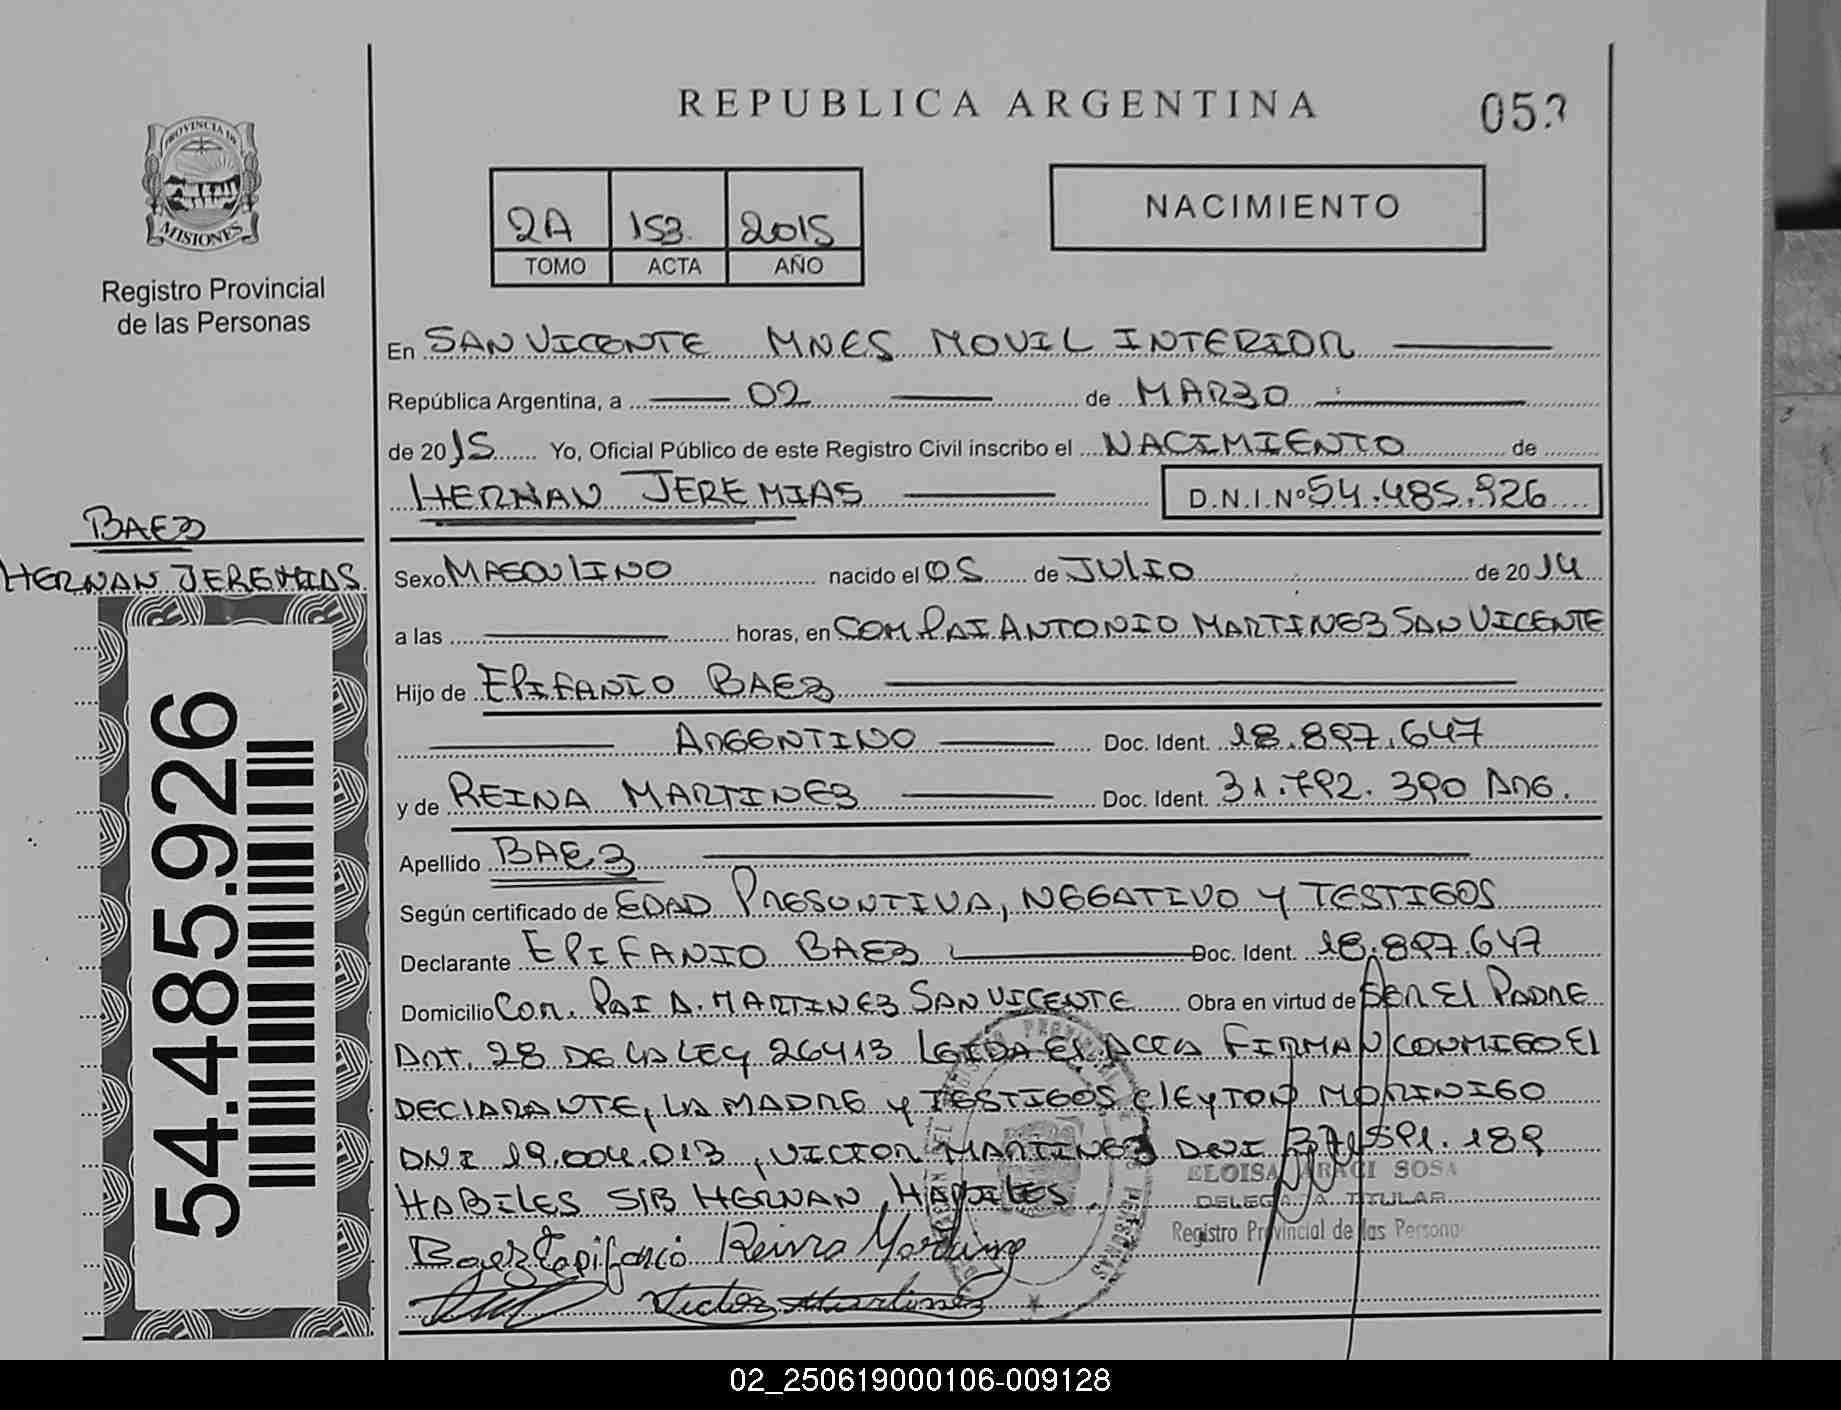 REPUBLICA ARGENTINA
PROVINCIA DE
MISIONES
Registro Provincial
de las Personas
2A 153. 2015
TOMO ACTA AÑO
NACIMIENTO
En SAN VICENTE MNES MOVIL INTERIOR
República Argentina, a 02 de MARZO
de 2015 Yo, Oficial Público de este Registro Civil inscribo el NACIMIENTO de
HERNAN JEREMIAS D.N.I.Nº 54.485.926
BAEZ
HERNAN JEREMIAS
54.485.926
Sexo MASCULINO nacido el 05 de JULIO de 2014
a las horas, en COM. PAI ANTONIO MARTINEZ SAN VICENTE
Hijo de EPIFANIO BAEZ
ARGENTINO Doc. Ident. 18.897.647
y de REINA MARTINEZ Doc. Ident. 31.792.390 ARG.
Apellido BAEZ
Según certificado de EDAD PRESUNTIVA, NEGATIVO Y TESTIGOS
Declarante EPIFANIO BAEZ Doc. Ident. 18.897.647
Domicilio COM. PAI A. MARTINEZ SAN VICENTE Obra en virtud de SER EL PADRE
ART. 28 DE LA LEY 26413 LEIDA EL ACTA FIRMAN CONMIGO EL
DECLARANTE, LA MADRE Y TESTIGOS CLEYTON MORINIGO
DNI 19.004.013, VICTOR MARTINEZ DNI 37.591.189
HABILES S/B HERNAN, HABILES
ELOISA SOSA
DELEGADA TITULAR
Registro Provincial de las Personas
Baez Epifanio Reina Martinez
Victor Martinez
02_250619000106-009128